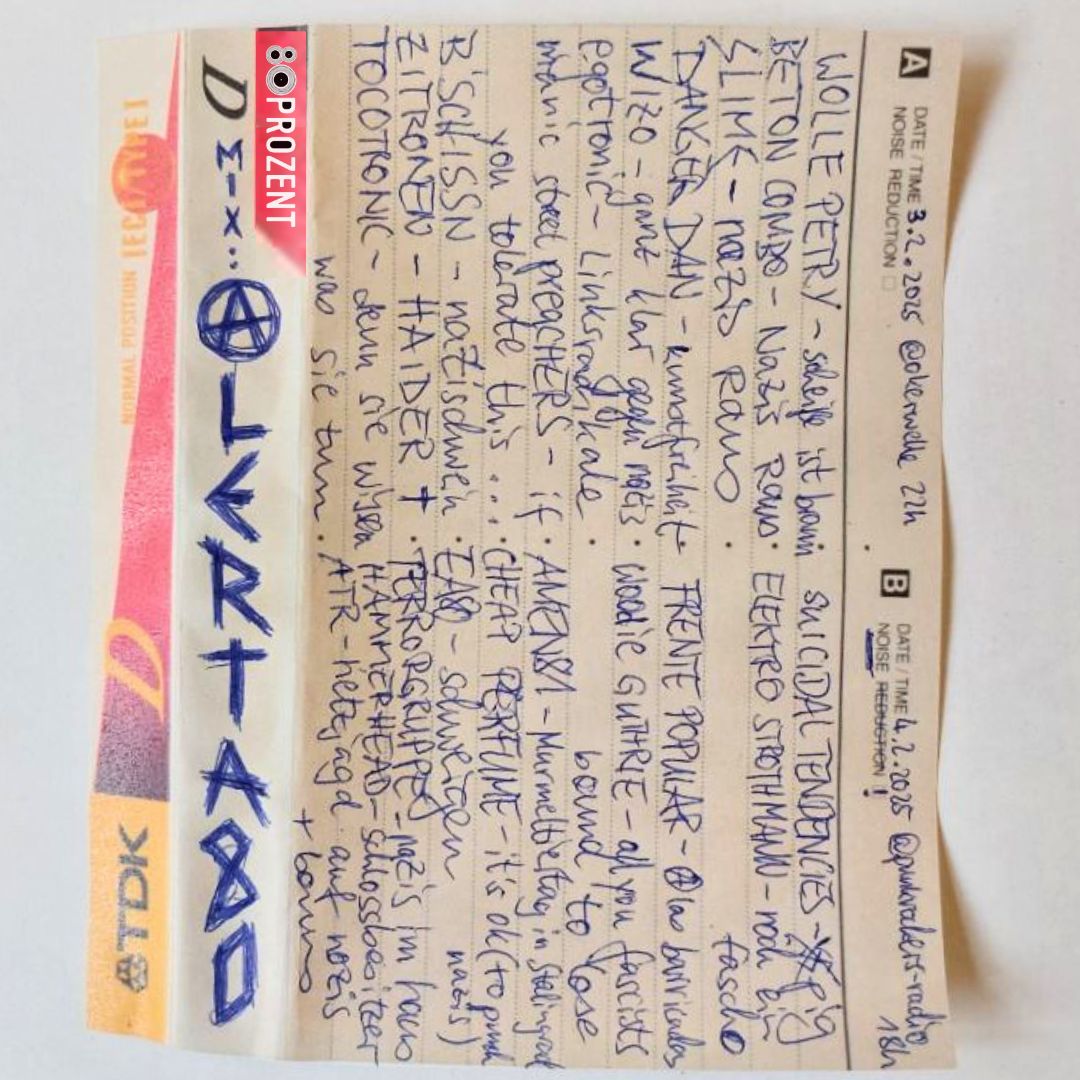 A DATE / TIME 3.2.2025 @okerwelle 22h
NOISE REDUCTION
B DATE / TIME 4.2.2025 @punkrockers-radio 18h
NOISE REDUCTION !
WOLLE PETRY - scheiße ist braun
BETON COMBO - Nazis Raus
SLIME - nazis Raus
DANGER DAN - kunstfreiheit
WIZO - ganz klar gegen nazis
egotronic - Linksradikale
manic street preaCHERS - if
you tolerate this ...
B'SCHISSN - nazischwein
ZITRONEN - HAIDER +
TOCOTRONIC - denn sie wissen
was sie tun.
SUICIDAL TENDENCIES - pig
ELEKTRO STROTHMANN - noch ein
fascho
FRENTE POPULAR - a las barricadas
woodie GUTHRIE - all you fascists
bound to lose
AMEN81 - Murmeltiertag in Stalingrad
CHEAP PERFUME - it's ok (to punch
nazis)
EA80 - schweigen
TERRORGRUPPE - nazis im haus
HAMMERHEAD - schlossbesitzer
ATR - hetzjagd auf nazis
+ bonus
80PROZENT
D Mix.. ALERTA
D
IECI/TYPE I
NORMAL POSITION
TDK